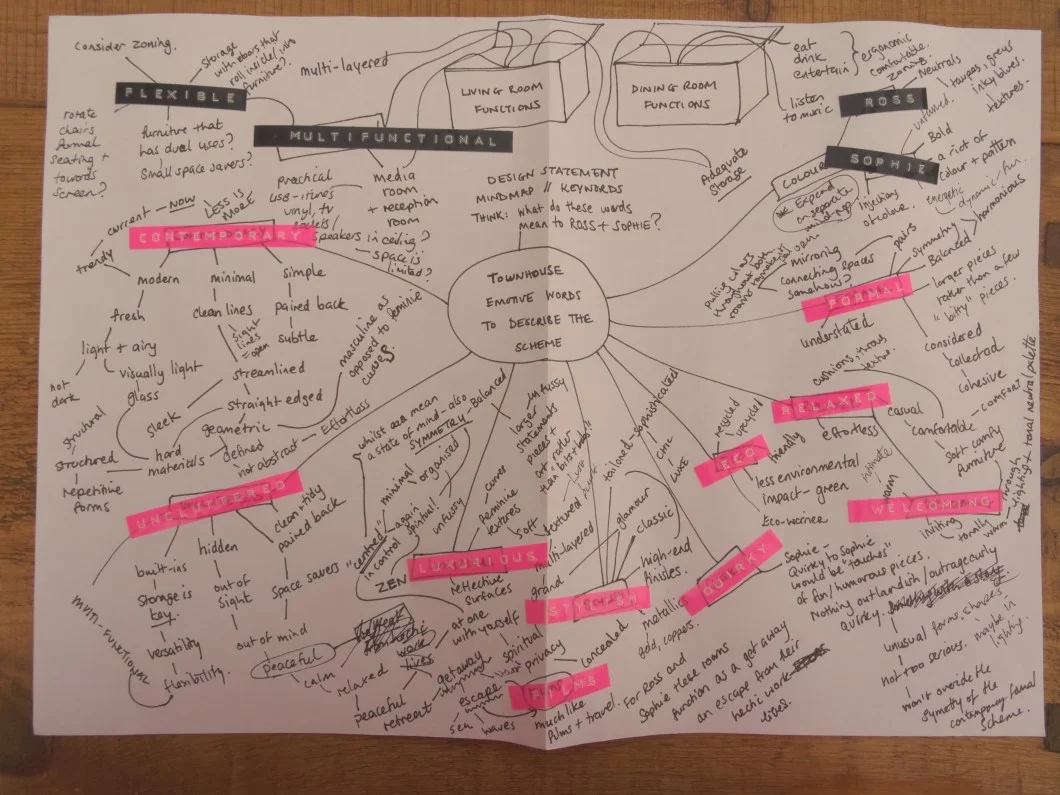 Consider zoning.
FLEXIBLE
storage
with doors that
roll inside/into
furniture?
multi-layered
rotate
chairs
formal
seating +
towards
screen?
furniture that
has dual uses?
Small space savers?
MULTIFUNCTIONAL
practical
vinyl, tv
speakers in ceiling?
media
room
+ reception
room
space is
limited?
LIVING ROOM
FUNCTIONS
DINING ROOM
FUNCTIONS
eat
drink
entertain
ergonomic
comfortable.
zoning.
listen
to music
Adequate
Storage
DESIGN STATEMENT
MINDMAP // KEYWORDS
THINK: What do these words
mean to ROSS + SOPHIE?
ROSS
Neutrals
taupes, greys
inky blues.
textures.
SOPHIE
Bold
a riot of
colour + pattern
energetic
dynamic / fun.
injections
of colour.
COLOUR
Expand
on separate
mind map
TOWNHOUSE
EMOTIVE WORDS
TO DESCRIBE THE
SCHEME
CONTEMPORARY
current - NOW
LESS IS
MORE
trendy
modern
minimal
simple
fresh
clean lines
paired back
sight
lines
= open
subtle
light + airy
not
dark
visually light
glass
streamlined
sleek
straight-edged
masculine as
opposed to feminine
curves
geometric
structural
structured
hard
materials
defined
not abstract
Effortless
repetitive
forms
UNCLUTTERED
clean + tidy
paired back
hidden
built-ins
storage is
key.
out of
sight
space savers
versatility
out of mind
flexibility.
MULTI-FUNCTIONAL
peaceful
calm
relaxed
peaceful
retreat
ZEN
"centred"
in control
whilst also mean
a state of mind - also
SYMMETRY - Balanced
minimal
organised
again
spiritual
unfussy
at one
with yourself
spiritual
getaway
escape
sea
waves
LUXURIOUS
unfussy
larger
statement
pieces +
art rather
than "bits + bobs"
curves
feminine
textures
soft
textured
reflective
surfaces
STYLISH
multi-layered
grand
tailored - sophisticated
glamour
classic
chic
luxe
high-end
finishes.
metallics
gold, coppers.
concealed
FILMS
privacy
much like
films + travel.
For Ross and
Sophie these rooms
function as a get away
an escape from their
hectic work
lives.
ECO
recycled
upcycled
friendly
less environmental
impact - green
Eco-warrior
QUIRKY
Sophie -
Quirky to Sophie
would be "touches"
of fun/humorous pieces.
Nothing outlandish/outrageously
quirky.
unusual forms, shapes
maybe in
lighting
not too serious.
won't overide the
symetry of the
contemporary formal
scheme.
FORMAL
pairs
symmetry
Balanced
harmonious
mirroring
connecting spaces
somehow?
pulling colours
throughout both
larger pieces
rather than a few
"bitty" pieces.
understated
considered
collected
cohesive
RELAXED
cushions, throws
texture.
casual
effortless
comfortable
comfort
soft comfy
furniture
WELCOMING
intimate
warm
inviting
tonally
warm - through
lighting + tonal neutral palette